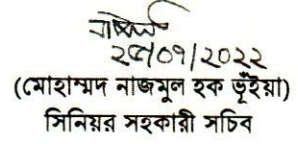 ২৫/০৭/২০২২
(মোহাম্মদ নাজমুল হক ভূঁইয়া)
সিনিয়র সহকারী সচিব